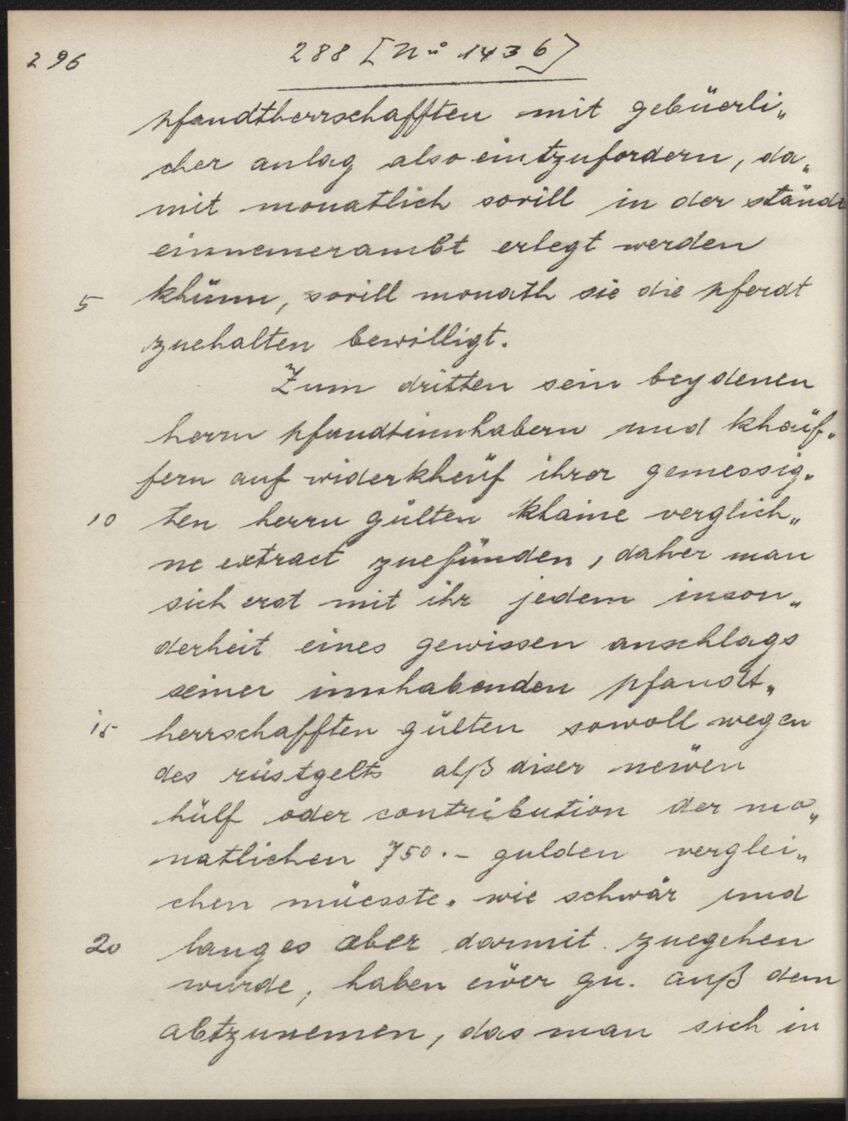 296
288 [No 1436]
pfandtherrschafften mit gebüerli„
cher anlag also eintzufordern, da„
mit monatlich sovill in der stände
einnemerambt erlegt werden
5 khünn, sovill monath sie die pferdt
zuehalten bewilligt.
Zum dritten sein bey denen
herrn pfandtinnhabern und khäuf„
fern auf widerkheüf ihrer gemessig„
10 ten herrn gülten khaine verglich„
ne extract zuefünden, daher man
sich erst mit ihr jedem inson„
derheit eines gewissen anschlags
seiner innhabenden pfandt„
15 herrschafften gülten sowoll wegen
des rüstgelts alß diser newen
hülf oder contribution der mo„
natlichen 750.- gulden verglei„
chen müesste. wie schwär und
20 lang es aber darmit zuegehen
wurde, haben eüer gn. auß dem
abtzunemen, das man sich in